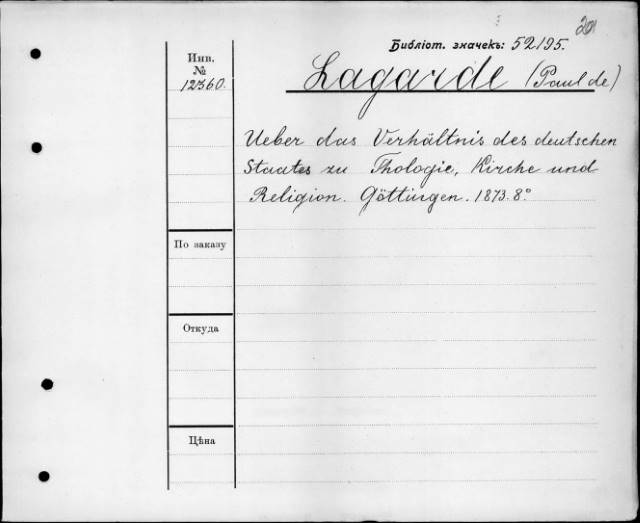 201
Библіот. значекъ: 52195.
Инв.
№
12360.
Lagarde (Paul de)
Ueber das Verhältnis des deutschen
Staates zu Thologie, Kirche und
Religion. Göttingen. 1873. 8º
По заказу
Откуда
Цѣна